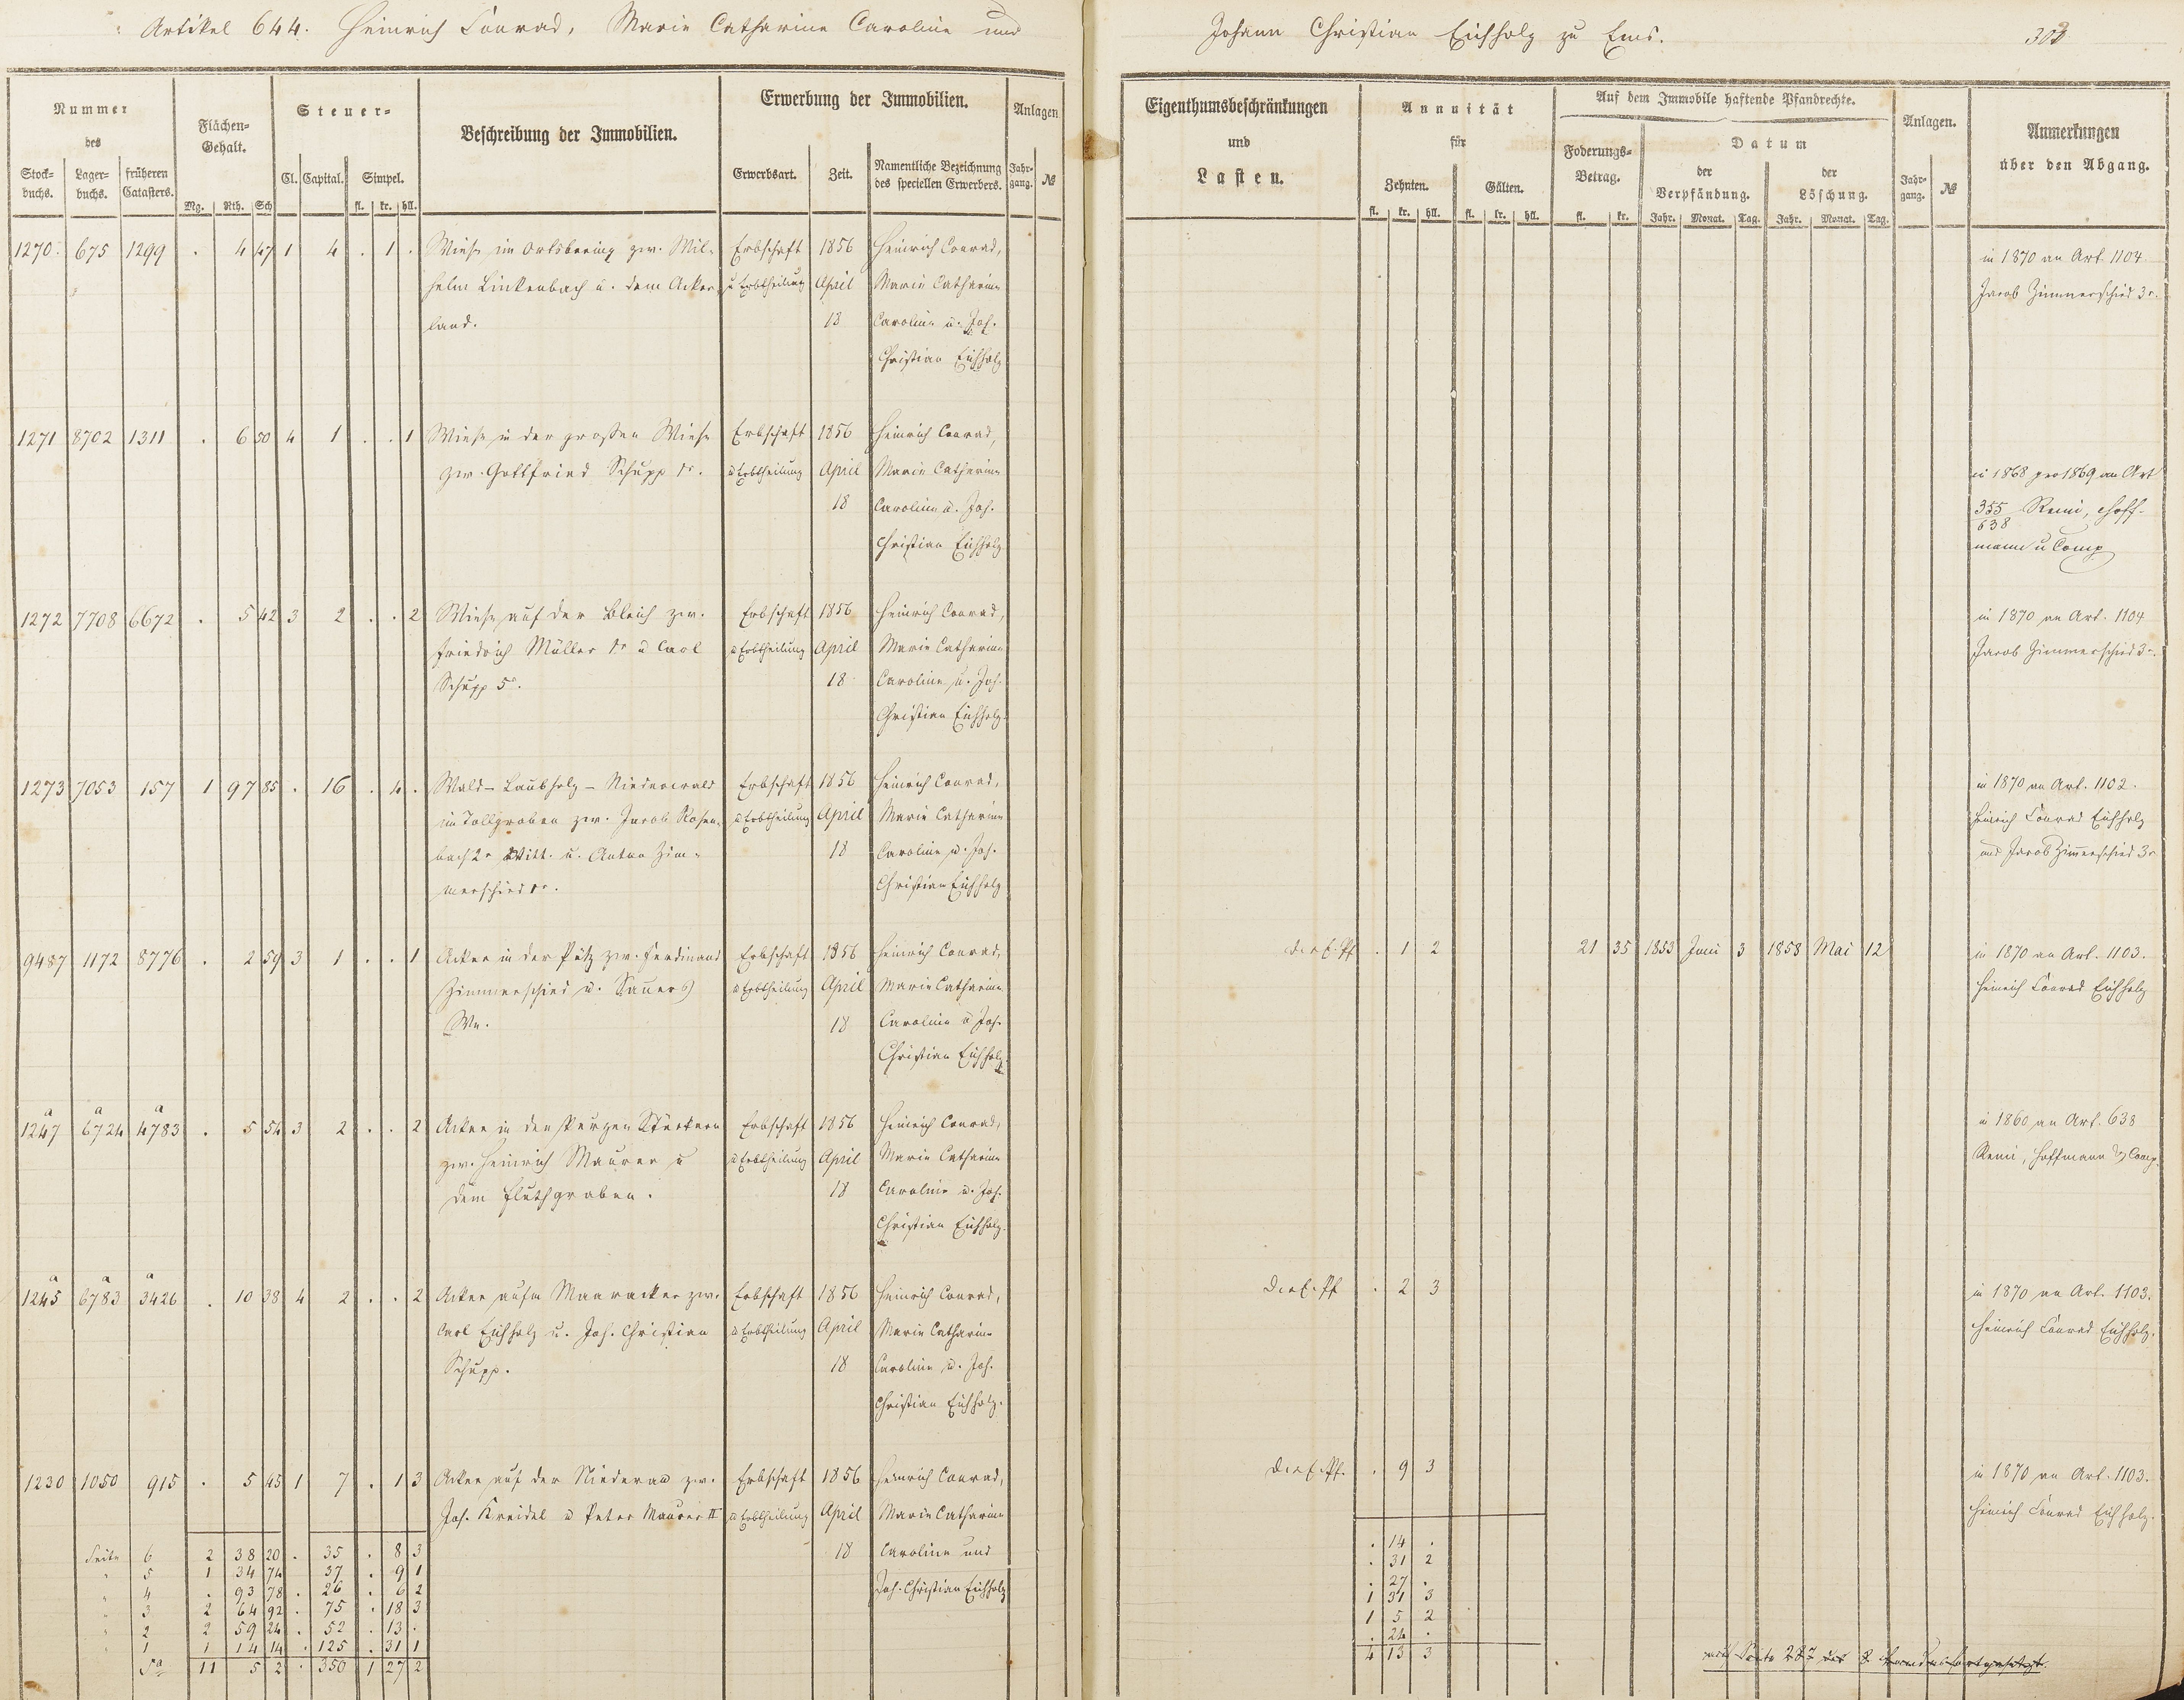 Artikel 644. Heinrich Conrad, Marie Catharine Caroline und
Johann Christian Eichholz zu Ems.
303
Nummer des
Stock-buchs. Lager-buchs. früheren Catasters.
Flächen-Gehalt.
Mg. Rth. Sch
Steuer-
Cl. Capital. Simpel.
fl. kr. hll.
Beschreibung der Immobilien.
Erwerbung der Immobilien.
Erwerbsart. Zeit. Namentliche Bezeichnung des speciellen Erwerbers.
Anlagen
Jahr-gang. №
Eigenthumsbeschränkungen
und
Lasten.
Annuität
für
Zehnten. Gülten.
fl. kr. hll. fl. kr. hll.
Auf dem Immobile haftende Pfandrechte.
Foderungs-Betrag.
fl. kr.
Datum
der Verpfändung. der Löschung.
Jahr. Monat. Tag. Jahr. Monat. Tag.
Anlagen.
Jahr-gang. №
Anmerkungen
über den Abgang.
1270. 675 1299 . 4 47 1 4 . 1 . Wiese im Ortsbering zw. Wil- Erbschaft 1856 Heinrich Conrad, in 1870 an Art. 1104
helm Linkenbach u. dem Acker- u Erbtheilung April Marie Catharine Jacob Zimmerschied 3r.
land. 18 Caroline u. Joh.
Christian Eichholz
1271 8702 1311 . 6 50 4 1 . . 1 Wiese in der großen Wiese Erbschaft 1856 Heinrich Conrad,
zw. Gottfried Schupp 1r. u Erbtheilung April Marie Catharine in 1868 pro 1869 an Art
18 Caroline u. Joh. 355/638 Remi, Hoff-
Christian Eichholz mann u Comp
1272 7708 6672 . 5 42 3 2 . . 2 Wiese auf der Bleich zw. Erbschaft 1856 Heinrich Conrad, in 1870 an Art. 1104
Friedrich Müller 1r u Carl u Erbtheilung April Marie Catharine Jacob Zimmerschied 3r.
Schupp 5r. 18 Caroline u. Joh.
Christian Eichholz.
1273 7053 157 1 97 85 . 16 . 4 . Wald- Laubholz- Niederwald Erbschaft 1856 Heinrich Conrad, in 1870 an Art. 1102.
im Tollgraben zw. Jacob Rosen- u Erbtheilung April Marie Catharine Heinrich Conrad Eichholz
bach 2r Witt. u. Anton Zim- 18 Caroline u. Joh. und Jacob Zimmerschied 3r
merschied 1r. Christian Eichholz
9487 1172 8776 . 2 59 3 1 . . 1 Acker in der Pütz zw. Ferdinand Erbschaft 1856 Heinrich Conrad, . 1 2 21 35 1853 Juni 3 1858 Mai 12 in 1870 an Art. 1103.
Zimmerschied u. Sauers u Erbtheilung April Marie Catharine Heinrich Conrad Eichholz
We. 18 Caroline u Joh.
Christian Eichholz.
1247a 6724a 4783a . 5 54 3 2 . . 2 Acker in den kurzen Stückern Erbschaft 1856 Heinrich Conrad, in 1860 an Art. 638
zw. Heinrich Maurer u u Erbtheilung April Marie Catharine Remi, Hoffmann & Comp.
dem Fluthgraben. 18 Caroline u. Joh.
Christian Eichholz.
1245a 6783a 3426a . 10 38 4 2 . . 2 Acker aufm Maaracker zw. Erbschaft 1856 Heinrich Conrad, . 2 3 in 1870 an Art. 1103.
Carl Eichholz u. Joh. Christian u Erbtheilung April Marie Catharine Heinrich Conrad Eichholz.
Schupp. 18 Caroline u. Joh.
Christian Eichholz.
1230 1050 915 . 5 45 1 7 . 1 3 Acker auf der Niederau zw. Erbschaft 1856 Heinrich Conrad, . 9 3 in 1870 an Art. 1103.
Joh. Kreidel u Peter Maurer II u Erbtheilung April Marie Catharine Heinrich Conrad Eichholz.
18 Caroline und
Joh. Christian Eichholz
Seite 6 2 38 20 . 35 . 8 3 . 14 .
" 5 1 34 74 . 37 . 9 1 . 31 2
" 4 . 93 78 . 26 . 6 2 . 27 .
" 3 2 64 92 . 75 . 18 3 1 31 3
" 2 2 59 24 . 52 . 13 . 1 5 2
" 1 1 14 14 . 125 . 31 1 . 24 .
Sa 11 5 2 . 350 1 27 2 4 13 3
auf Seite 287 des 8. Bandes fortgesetzt.